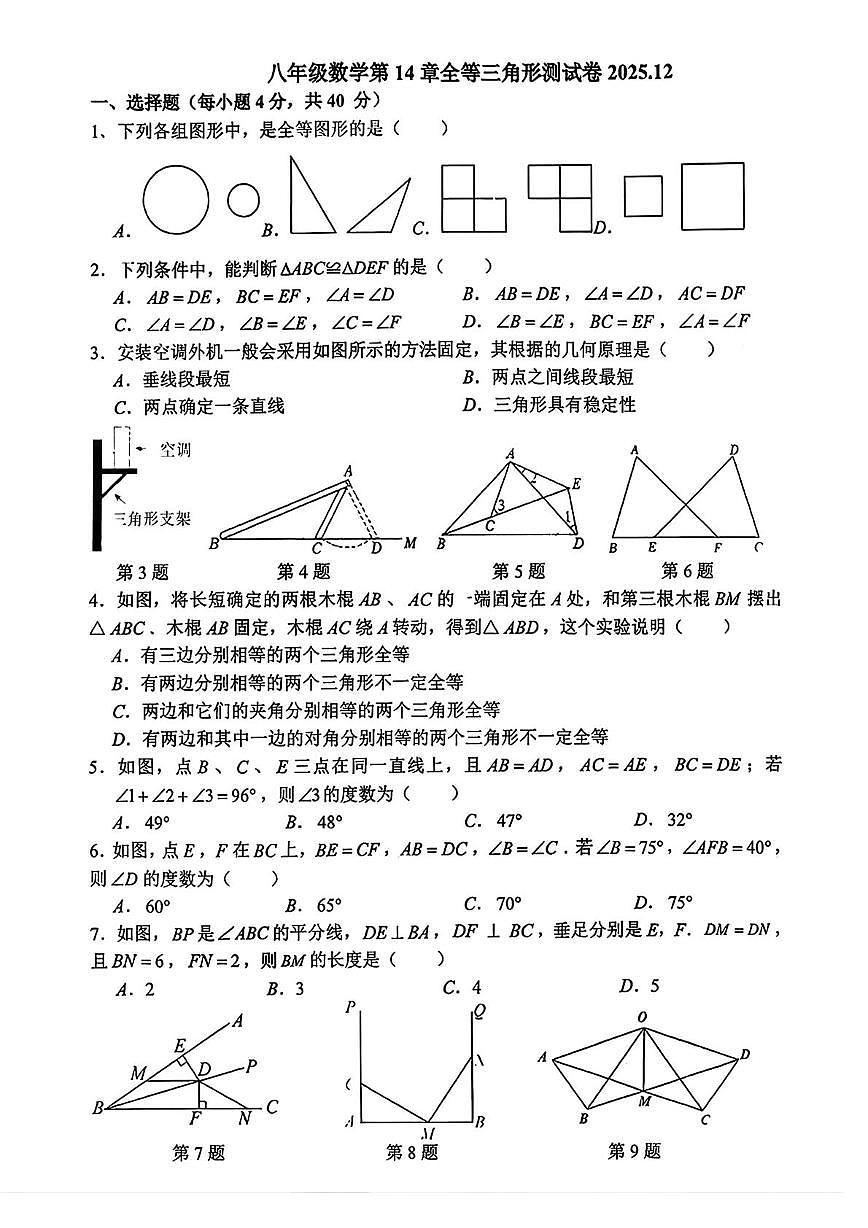 八年级数学第 14 章全等三角形测试卷 2025.12
一、选择题（每小题 4 分，共 40 分）
1、下列各组图形中，是全等图形的是（　　）
A. B. C. D.
2．下列条件中，能判断△ABC≌△DEF 的是（　　）
A．AB=DE，BC=EF，∠A=∠D B．AB=DE，∠A=∠D，AC=DF
C．∠A=∠D，∠B=∠E，∠C=∠F D．∠B=∠E，BC=EF，∠A=∠F
3．安装空调外机一般会采用如图所示的方法固定，其根据的几何原理是（　　）
A．垂线段最短 B．两点之间线段最短
C．两点确定一条直线 D．三角形具有稳定性
空调
三角形支架
A B C D M
A B C D E 1 2 3
A D B E F C
第 3 题 第 4 题 第 5 题 第 6 题
4．如图，将长短确定的两根木棍 AB 、 AC 的 一端固定在 A 处，和第三根木棍 BM 摆出
△ ABC、木棍 AB 固定，木棍 AC 绕 A 转动，得到△ ABD，这个实验说明（　　）
A．有三边分别相等的两个三角形全等
B．有两边分别相等的两个三角形不一定全等
C．两边和它们的夹角分别相等的两个三角形全等
D．有两边和其中一边的对角分别相等的两个三角形不一定全等
5．如图，点 B 、 C 、 E 三点在同一直线上，且 AB=AD， AC=AE， BC=DE；若
∠1+∠2+∠3=96°，则∠3的度数为（　　）
A．49° B．48° C．47° D．32°
6．如图，点 E，F 在 BC 上，BE=CF，AB=DC，∠B=∠C．若∠B=75°，∠AFB=40°，
则∠D 的度数为（　　）
A．60° B．65° C．70° D．75°
7．如图，BP 是∠ABC 的平分线，DE⊥BA，DF ⊥ BC，垂足分别是 E，F．DM=DN，
且 BN=6，FN=2，则 BM 的长度是（　　）
A．2 B．3 C．4 D．5
A E M D P B F N C
P Q A M B
O A D B M C
第 7 题 第 8 题 第 9 题